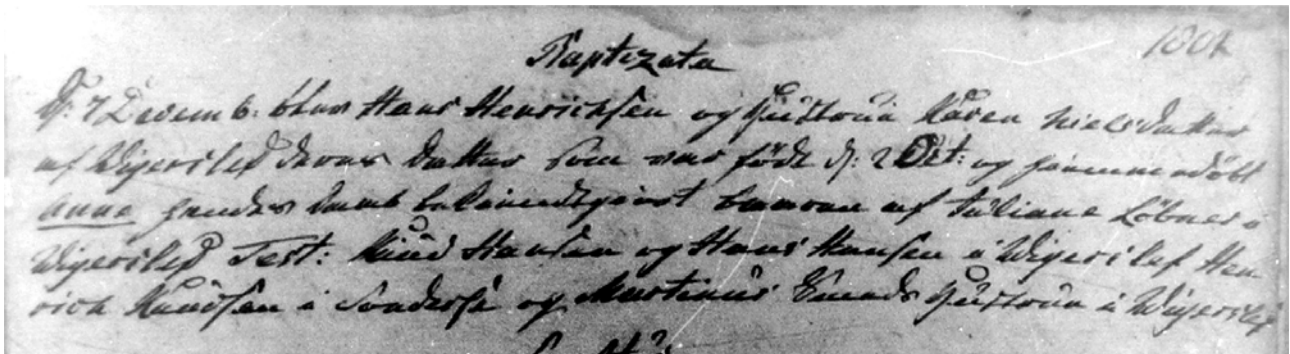 Baptizata
1801
D: 7 Decemb: blev Hans Henrichsen og Hustrue Karen Nielsdatter
af Wigerslef deres datter som var föde d: 2 Oct: og hiemmedöbt
Anna hendes daab bekiendtgiort baaren af Juliane Löbner i
Wigerslef Test: Knud Hansen og Hans Hansen i Wigerslef Hen
rich Knudsen i Söndersöe og Martinus Hustrue i Wigerslef